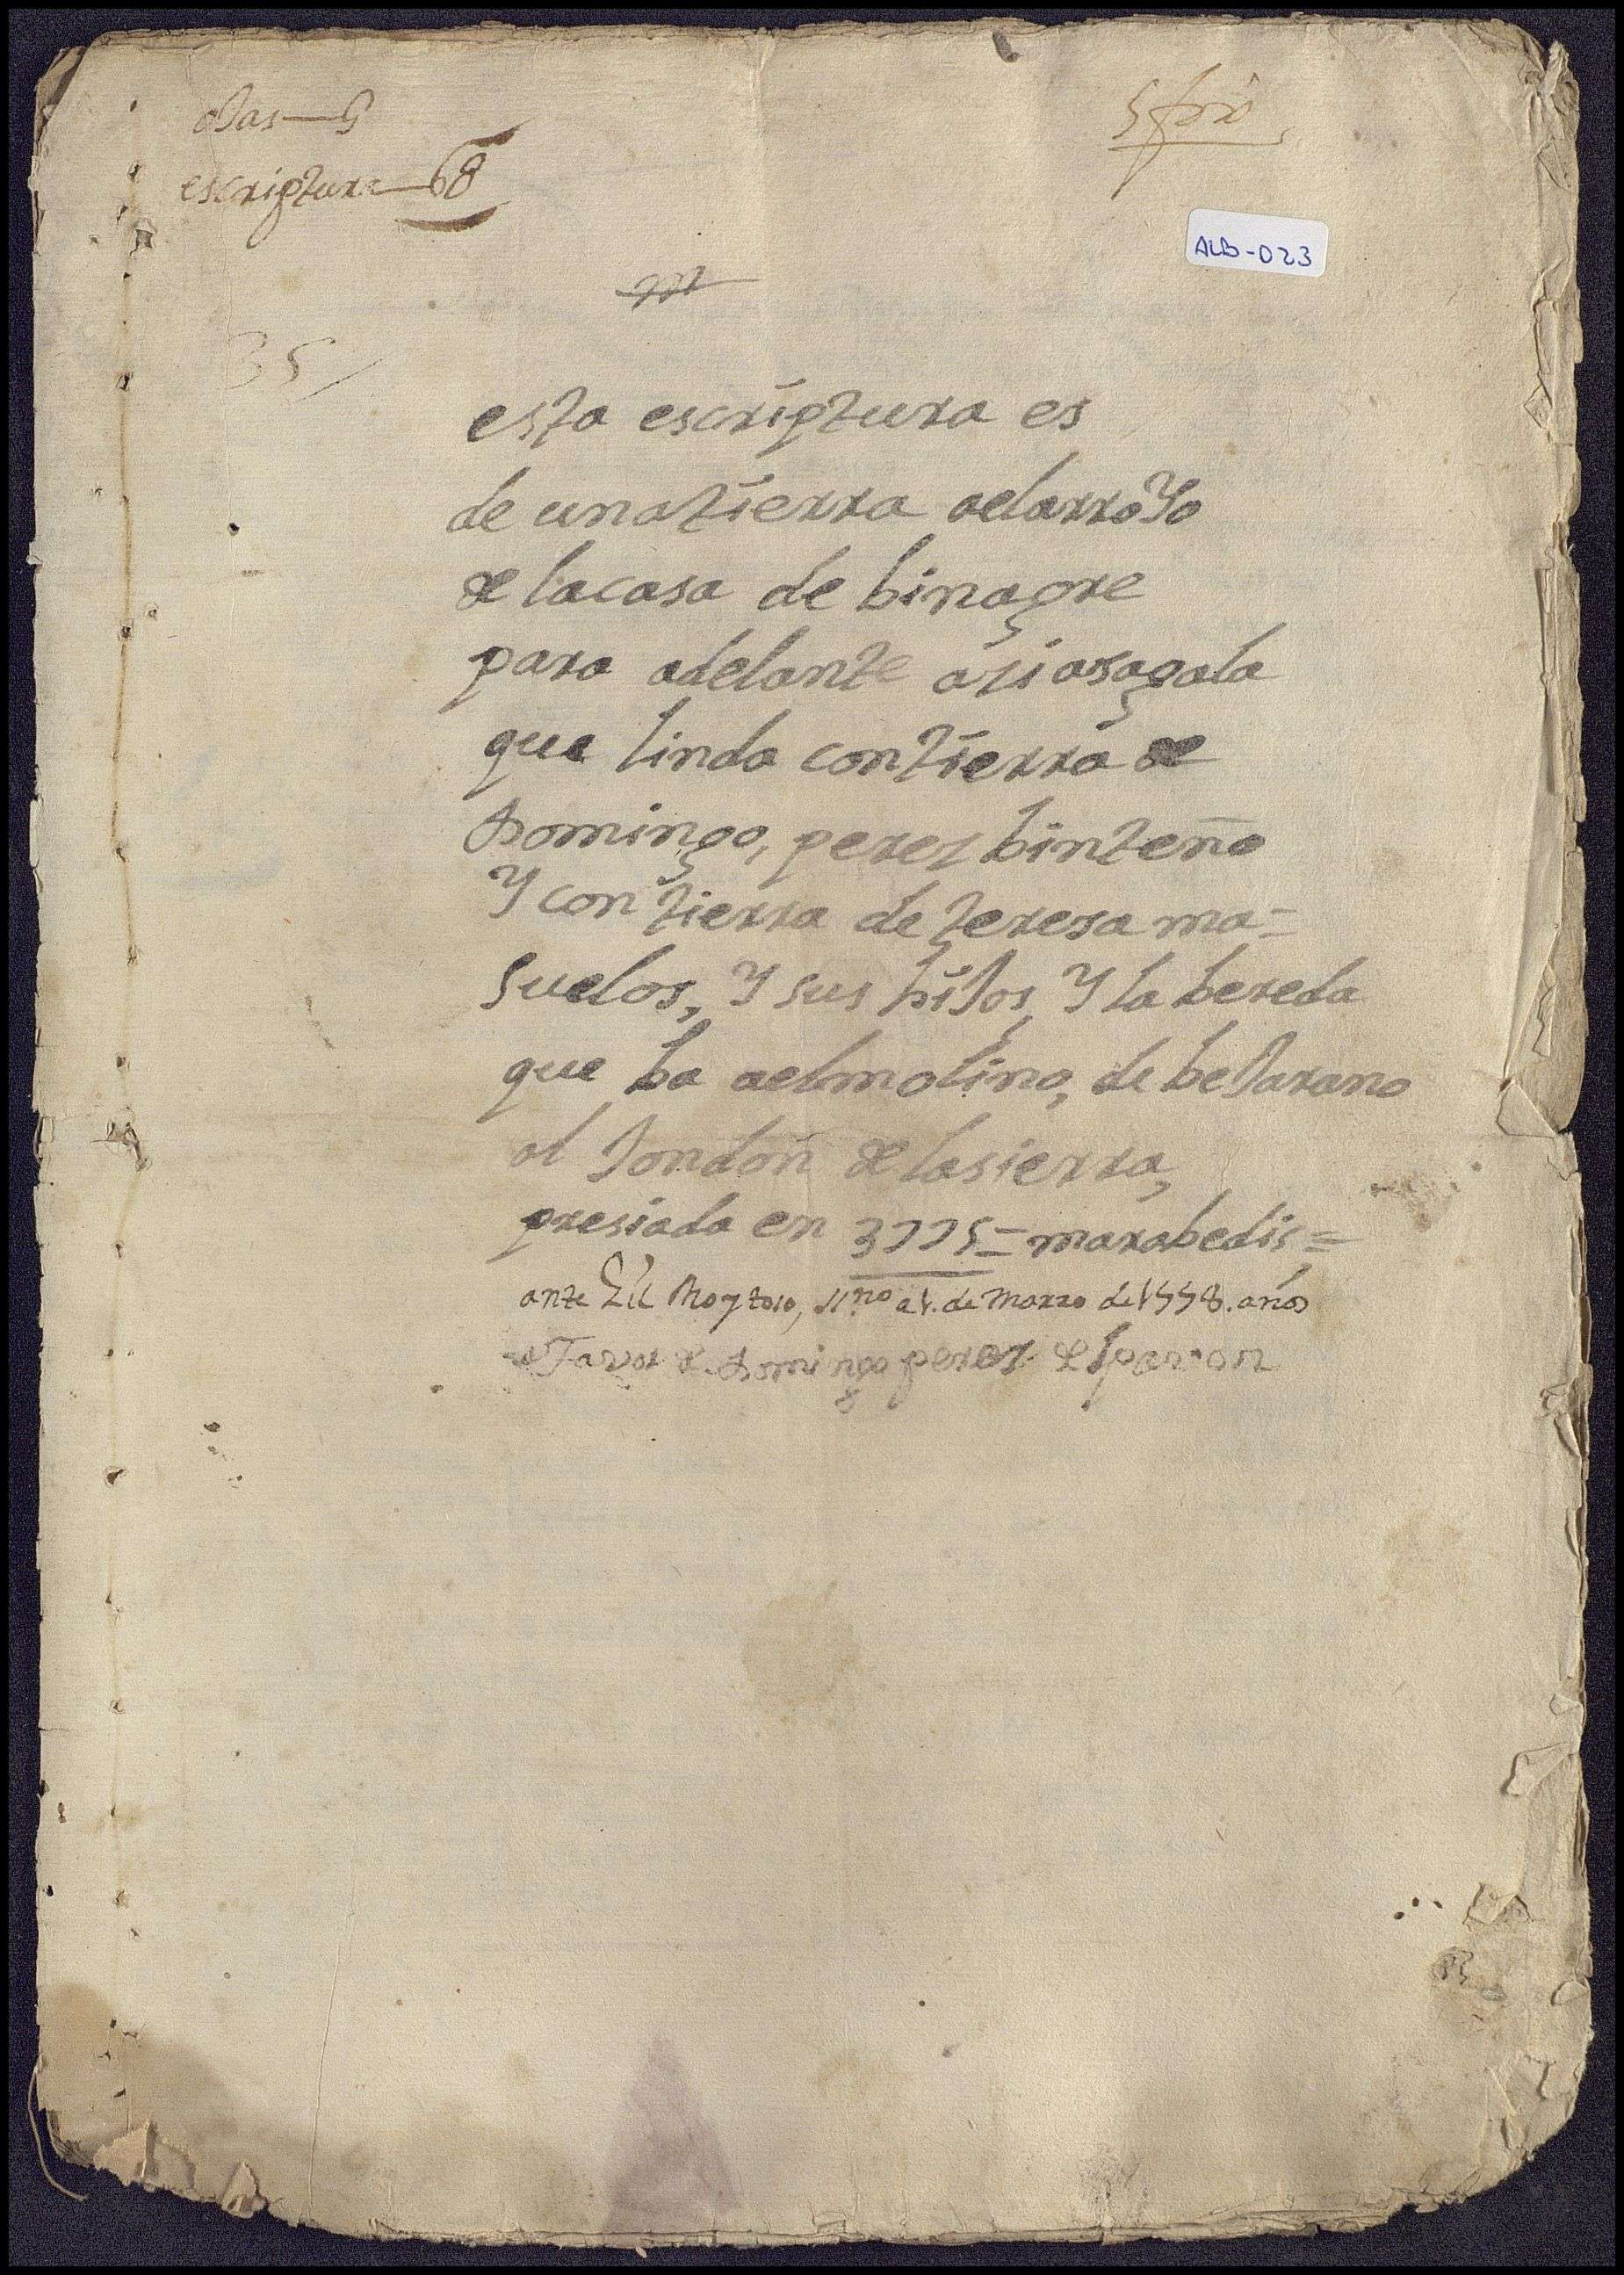 escriptura—68
ALB-023
35
esta escriptura es
de una tierra aelarroyo
de lacasa de binagre
para adelante asi asagala
que linda contierra de
Domingo, perez binteño
Y con tierra de teresa ma=
suelos, Y sus hijos, Y la bereda
que ba aelmolino, de beJarano
al Jondon de lasierra,
presiada en 3775= marabedis=
ante Gil Moytoso, ss.no a 1. de Marzo de 1558. años
a Favor de Domingo perez